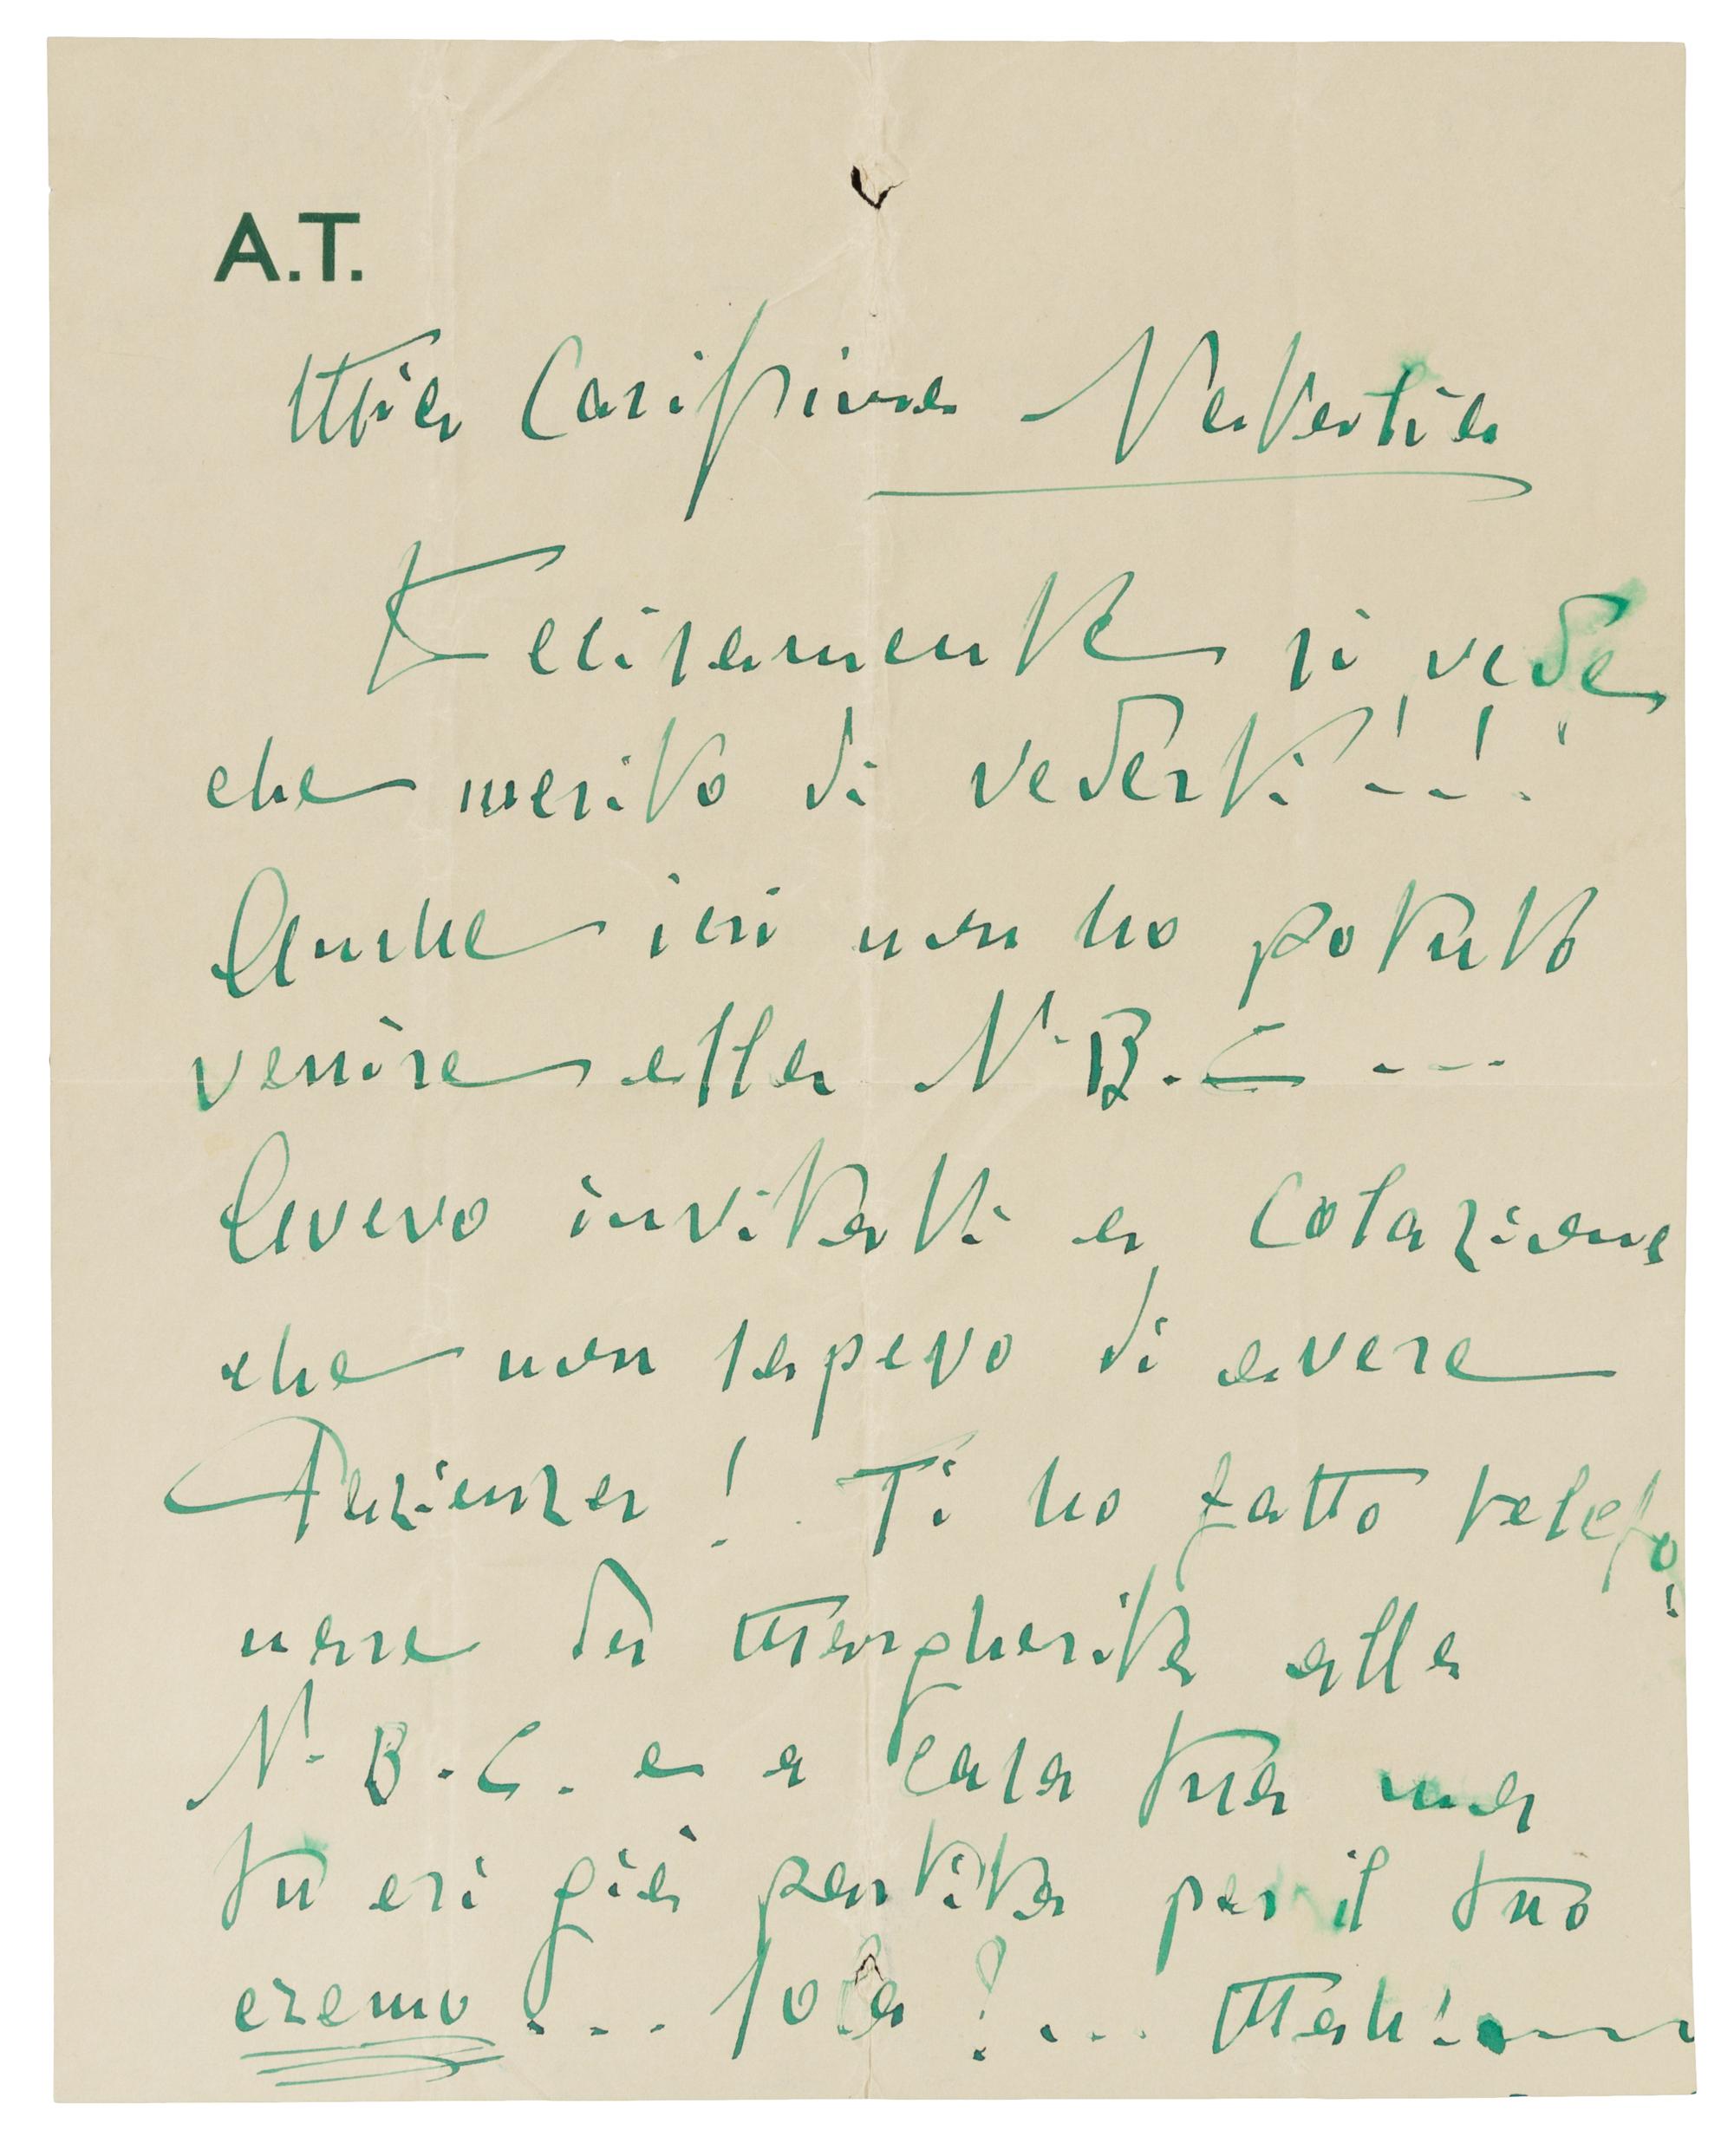 A.T.
Mia Carissima Natalia
Decisamente si vede
che merito di vederti!!!
Anche ieri non ho potuto
venire alla N.B.C. ---
Avevo invitati a Colazione
che non sapevo di avere
Pazienza! Ti ho fatto telefo-
nare da Margherita alla
N.B.C. e a casa tua ma
tu eri già partita per il tuo
eremo ... sola? ... Mah!...